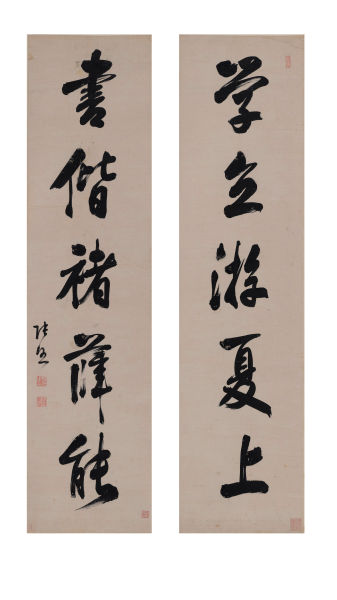 学立游夏上
書偕褚薛能
张照